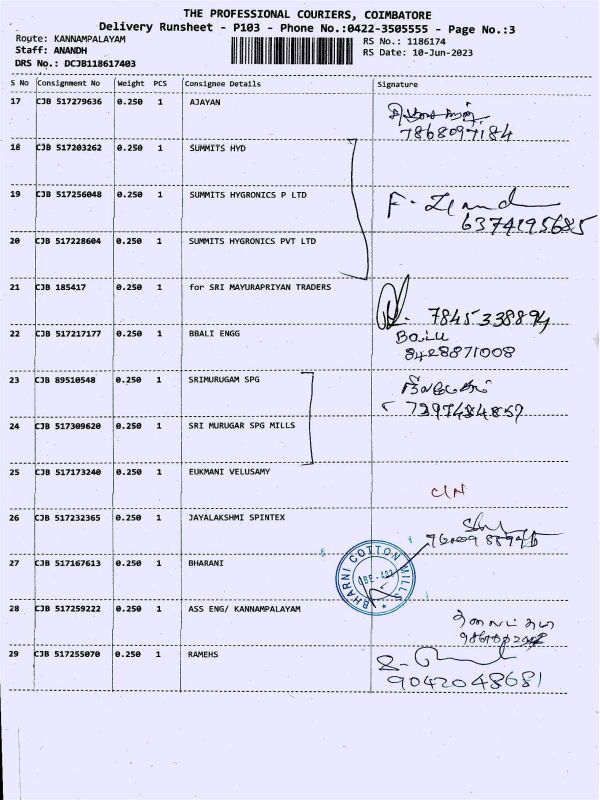 THE PROFESSIONAL COURIERS, COIMBATORE
Delivery Runsheet - P103 - Phone No.:0422-3505555 - Page No.:3
Route: KANNAMPALAYAM
RS No.: 1186174
Staff: ANANDH
RS Date: 10-Jun-2023
DRS No.: DCJB118617403
S No Consignment No Weight PCS Consignee Details Signature
17 CJB 517279636 0.250 1 AJAYAN
7868097184
18 CJB 517203262 0.250 1 SUMMITS HYD
19 CJB 517256048 0.250 1 SUMMITS HYGRONICS P LTD
6374195685
20 CJB 517228604 0.250 1 SUMMITS HYGRONICS PVT LTD
21 CJB 185417 0.250 1 for SRI MAYURAPRIYAN TRADERS
7845338894
22 CJB 517217177 0.250 1 BBALI ENGG
8428871008
23 CJB 89510548 0.250 1 SRIMURUGAM SPG
24 CJB 517309620 0.250 1 SRI MURUGAR SPG MILLS
25 CJB 517173240 0.250 1 EUKMANI VELUSAMY
C/N
26 CJB 517232365 0.250 1 JAYALAKSHMI SPINTEX
27 CJB 517167613 0.250 1 BHARANI
BHARNI COTTON MILLS
28 CJB 517259222 0.250 1 ASS ENG/ KANNAMPALAYAM
29 CJB 517255070 0.250 1 RAMEHS
9042048681